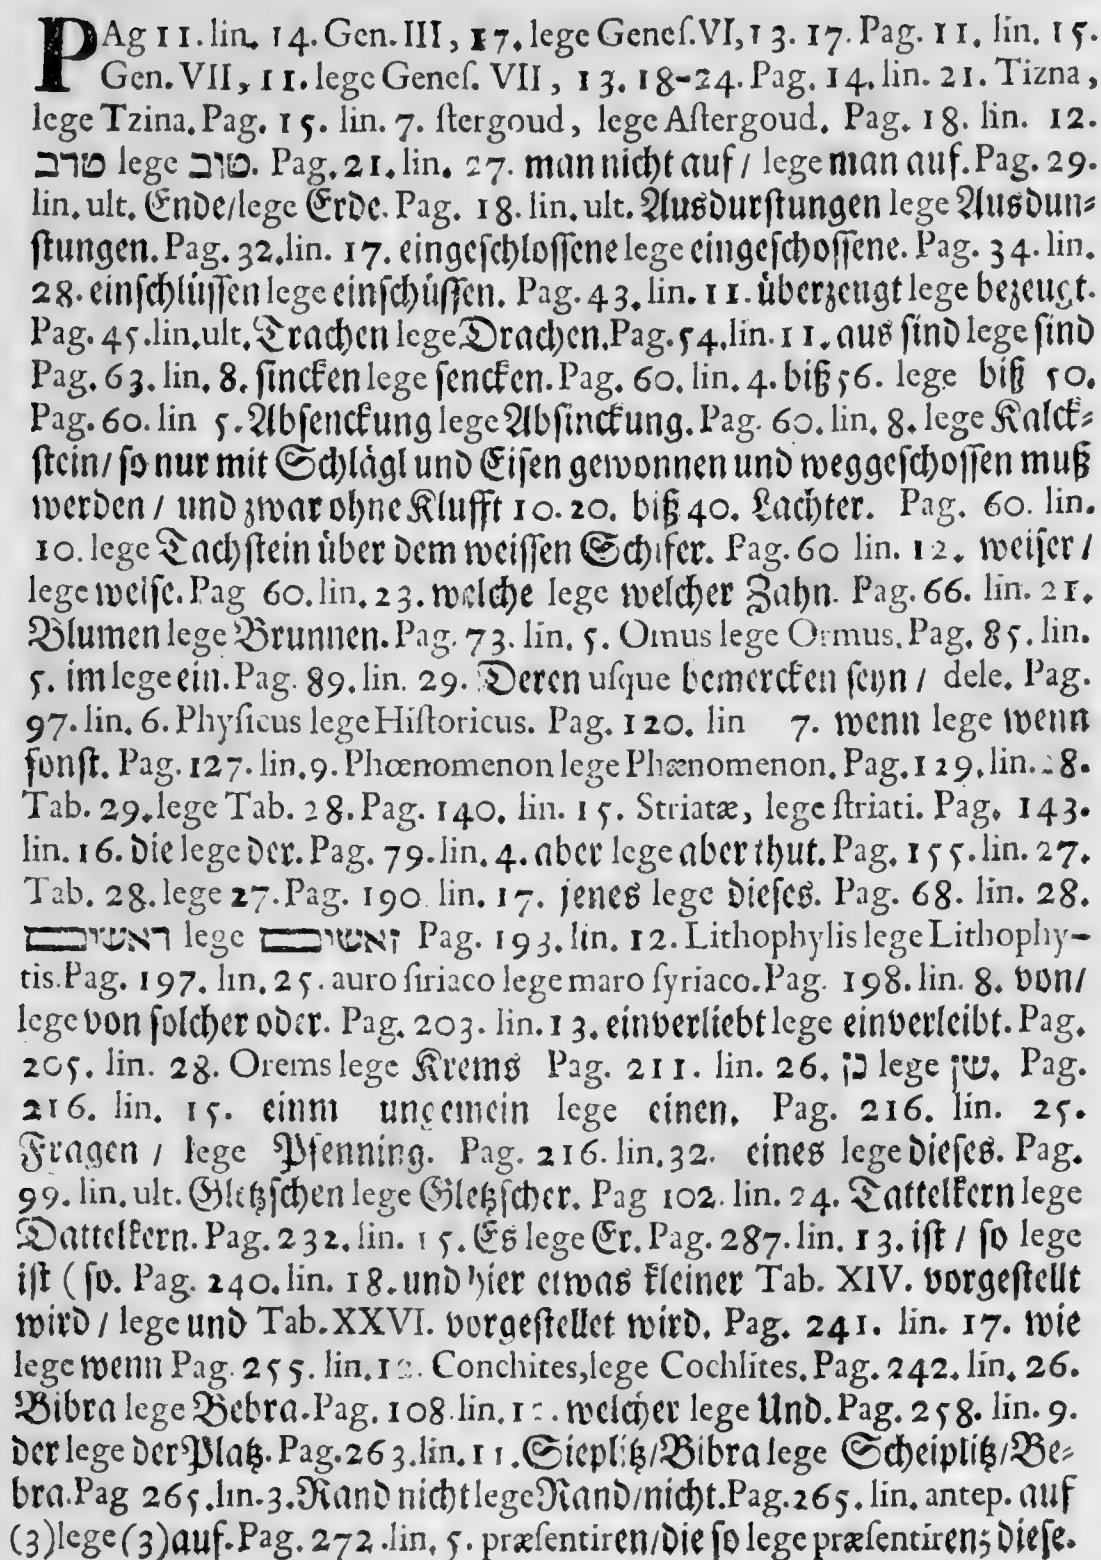 PAg 11. lin. 14. Gen. III, 17. lege Geneſ. VI, 13. 17. Pag. 11. lin. 15.
Gen. VII, 11. lege Geneſ. VII, 13. 18-24. Pag. 14. lin. 21. Tizna,
lege Tzina. Pag. 15. lin. 7. ſtergoud, lege Aſtergoud. Pag. 18. lin. 12.
טרב lege טוב. Pag. 21. lin. 27. man nicht auf / lege man auf. Pag. 29.
lin. ult. Ende/lege Erde. Pag. 18. lin. ult. Ausdurſtungen lege Ausdun⸗
ſtungen. Pag. 32. lin. 17. eingeſchloſſene lege eingeſchoſſene. Pag. 34. lin.
28. einſchlüſſen lege einſchüſſen. Pag. 43. lin. 11. überzeugt lege bezeugt.
Pag. 45. lin. ult. Trachen lege Drachen. Pag. 54. lin. 11. aus ſind lege ſind
Pag. 63. lin. 8. ſincken lege ſencken. Pag. 60. lin. 4. biß 56. lege biß 50.
Pag. 60. lin 5. Abſenckung lege Abſinckung. Pag. 60. lin. 8. lege Kalck⸗
ſtein/ ſo nur mit Schlägl und Eiſen gewonnen und weggeſchoſſen muß
werden / und zwar ohne Klufft 10. 20. biß 40. Lachter. Pag. 60. lin.
10. lege Tachſtein über dem weiſſen Schifer. Pag. 60 lin. 12. weiſer /
lege weiſe. Pag 60. lin. 23. welche lege welcher Zahn. Pag. 66. lin. 21.
Blumen lege Brunnen. Pag. 73. lin. 5. Omus lege Ormus. Pag. 85. lin.
5. im lege ein. Pag. 89. lin. 29. Deren uſque bemercken ſeyn / dele. Pag.
97. lin. 6. Phyſicus lege Hiſtoricus. Pag. 120. lin 7. wenn lege wenn
ſonſt. Pag. 127. lin. 9. Phœnomenon lege Phænomenon. Pag. 129. lin. 28.
Tab. 29. lege Tab. 28. Pag. 140. lin. 15. Striatæ, lege ſtriati. Pag. 143.
lin. 16. die lege der. Pag. 79. lin. 4. aber lege aber thut. Pag. 155. lin. 27.
Tab. 28. lege 27. Pag. 190 lin. 17. jenes lege dieſes. Pag. 68. lin. 28.
ראשים lege זאשים Pag. 193. lin. 12. Lithophylis lege Lithophy-
tis. Pag. 197. lin. 25. auro ſiriaco lege maro ſyriaco. Pag. 198. lin. 8. von/
lege von ſolcher oder. Pag. 203. lin. 13. einverliebt lege einverleibt. Pag.
205. lin. 28. Orems lege Krems Pag. 211. lin. 26. כן lege שן. Pag.
216. lin. 15. einm ungemein lege einen. Pag. 216. lin. 25.
Fragen / lege Pfenning. Pag. 216. lin. 32. eines lege dieſes. Pag.
99. lin. ult. Gletzſchen lege Gletzſcher. Pag 102. lin. 24. Tattelkern lege
Dattelkern. Pag. 232. lin. 15. Es lege Er. Pag. 287. lin. 13. iſt / ſo lege
iſt (ſo. Pag. 240. lin. 18. und hier etwas kleiner Tab. XIV. vorgeſtellt
wird / lege und Tab. XXVI. vorgeſtellet wird. Pag. 241. lin. 17. wie
lege wenn Pag. 255. lin. Conchites, lege Cochlites. Pag. 242. lin. 26.
Bibra lege Bebra. Pag. 108. lin. welcher lege Und. Pag. 258. lin. 9.
der lege der Platz. Pag. 263. lin. 11. Sieplitz/Bibra lege Scheiplitz/Be⸗
bra. Pag 265. lin. 3. Rand nicht lege Rand/nicht. Pag. 265. lin. antep. auf
(3) lege (3) auf. Pag. 272. lin. 5. præſentiren/die ſo lege præſentiren; dieſe.